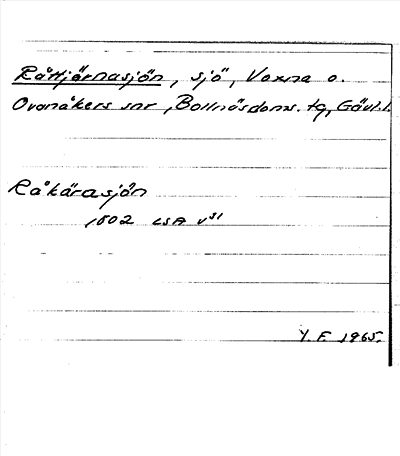 Råttjärnasjön, sjö, Voxna o.
Ovanåkers snr, Bollnäs doms. tg, Gävl. l.
Råkärasjön
1802 LSA v31
Y. F. 1965.